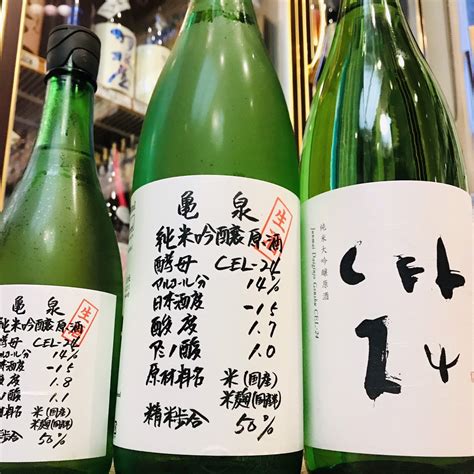 亀泉
純米吟醸原酒
酵母 CEL-24
アルコール分 14%
日本酒度 -15
酸度 1.8
アミノ酸 1.1
原材料名 米(国産)
米麹(国産米)
精米歩合 50%
生酒
亀泉
純米吟醸原酒
酵母 CEL-24
アルコール分 14%
日本酒度 -15
酸度 1.7
アミノ酸 1.0
原材料名 米(国産)
米麹(国産米)
精米歩合 50%
生酒
純米大吟醸原酒
Junmai Daiginjo Genshu CEL-24
CEL
24